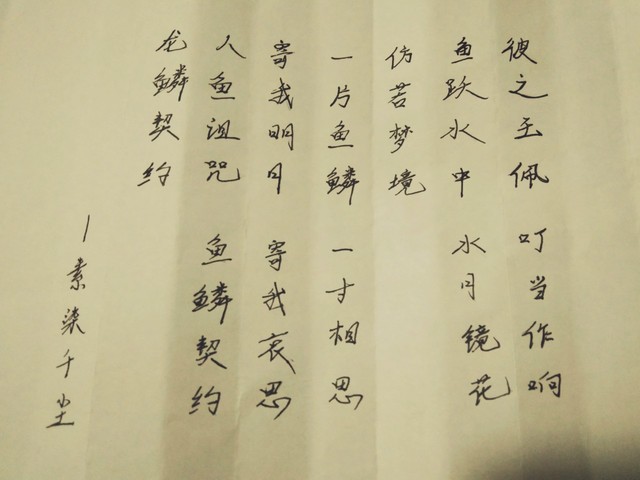 彼之玉佩 叮当作响
鱼跃水中 水月镜花
仿若梦境
一片鱼鳞 一寸相思
寄我明月 寄我哀思
人鱼诅咒 鱼鳞契约
龙鳞契约
—素染千尘